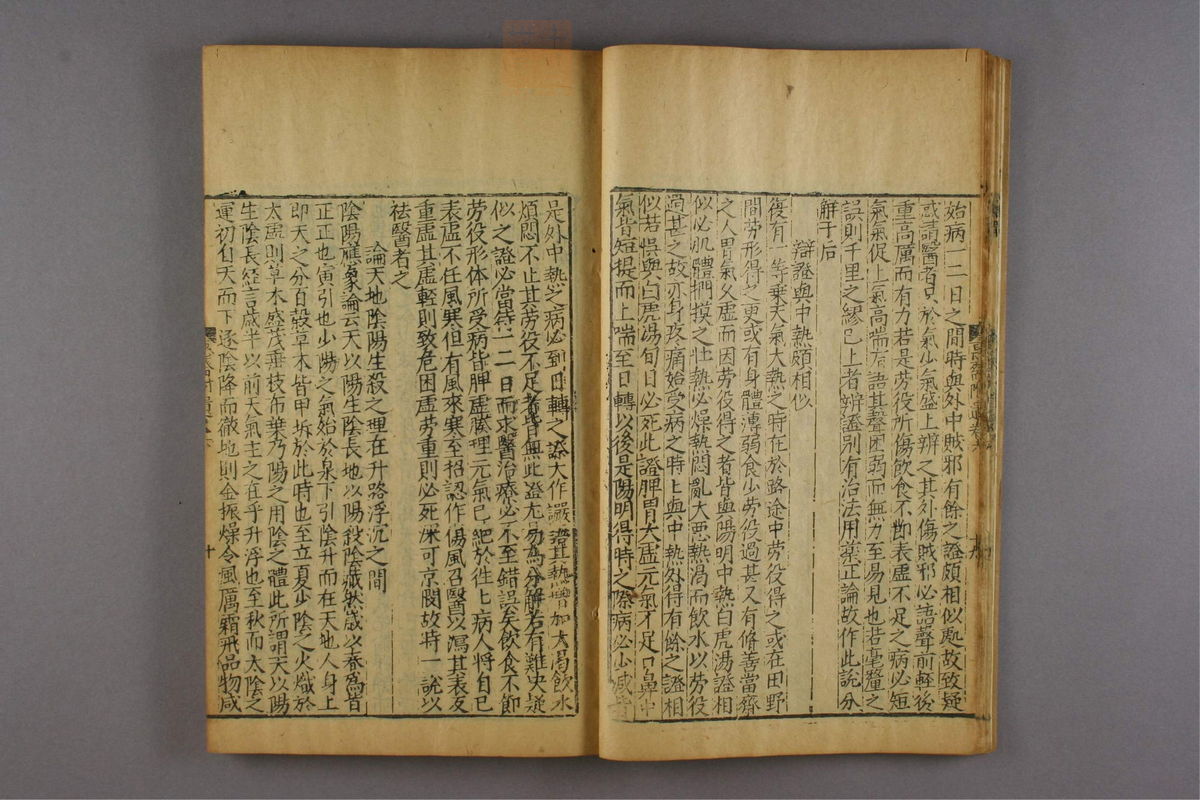 始病一二日之間時與外中賊邪有餘之證頗相似處故致疑
惑請醫者只於氣少氣盛上辨之其外傷賊邪必語聲前輕後
重高厲而有力若是勞役所傷飲食不節表虛不足之病必短
氣氣促上氣高喘有語其聲困弱而無力至易見也若毫釐之
誤則千里之繆已上者辨證別有治法用藥正論故作此說分
解于后
辯證與中熱頗相似
復有一等乗天氣大熱之時在於路途中勞役得之或在田野
間勞形得之更或有身體薄弱食少勞役過甚又有脩善當齋
之人胃氣久虛而因勞役得之者皆與陽明中熱白虎湯證相
似必肌體捫摸之壯熱必燥熱悶亂大惡熱渴而飲水以勞役
過甚之故亦身疼痛始受病之時上與中熱外得有餘之證相
似若悞與白虎湯旬日必死此證脾胃大虛元氣不足口鼻中
氣皆短提而上喘至日轉以後是陽明得時之際病必少減若
是外中熱之病必到日轉之際大作譫語其熱增加大渴飲水
煩悶不止其勞役不足者皆無此證尤易為分解若有難决疑
似之證必當待一二日而求醫治療必不至錯誤矣飲食不節
勞役形体所受病皆脾虛腠理元氣已絶於往上病人將自已
表虛不任風寒但有風來寒至招認作傷風召醫以瀉其表友
重虛其虛輕則致危困虛勞重則必死深可哀閔故特一說以
祛醫者之
論天地陰陽生殺之理在升降浮沉之間
陰陽應象論云天以陽生陰長地以陽殺陰藏然歲以春為首
正正也寅引也少陽之氣始於泉下引陰升而在天地人身上
即天之分百穀草木皆甲坼於此時也至立夏少陰之火熾於
太虛則草木盛茂垂枝布葉乃陽之用陰之體此所謂天以陽
生陰長經言歲半以前天氣主之在乎升浮也至秋而太陰之
運初自天而下逐陰降而徹地則金振燥令風厲霜飛品物咸